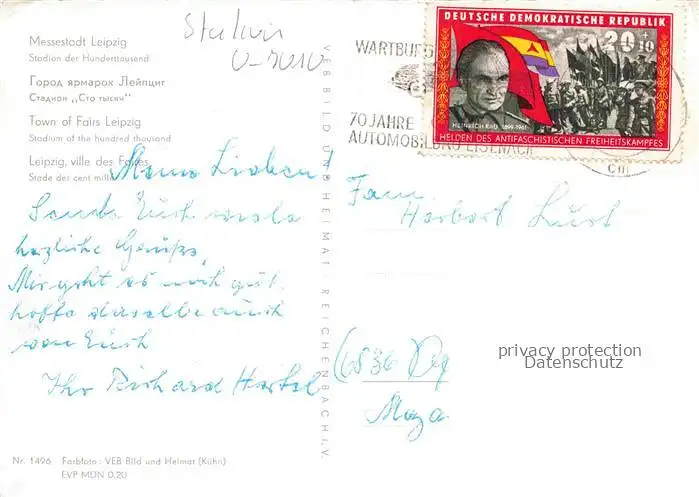 Messestadt Leipzig
Stadion der Hunderttausend
Город ярмарок Лейпциг
Стадион „Сто тысяч"
Town of Fairs Leipzig
Stadium of the hundred thousand
Leipzig, ville des Foires
Stade des cent mill
Stadion
0-7010
Meine Lieben!
Sende Euch viele
herzliche Grüße,
Mir geht es noch gut
hoffe dasselbe auch
von Euch
Ihr Richard Hertel
Nr. 1496 Farbfoto: VEB Bild und Heimat (Kühn)
EVP MDN 0.20
VEB BILD UND HEIMAT REICHENBACH I.V.
WARTBURG
70 JAHRE
AUTOMOBILBAU EISENACH
DEUTSCHE DEMOKRATISCHE REPUBLIK
20+10
HEINRICH RAU 1899-1961
HELDEN DES ANTIFASCHISTISCHEN FREIHEITSKAMPFES
Fam.
Herbert
(6536)
privacy protection
Datenschutz